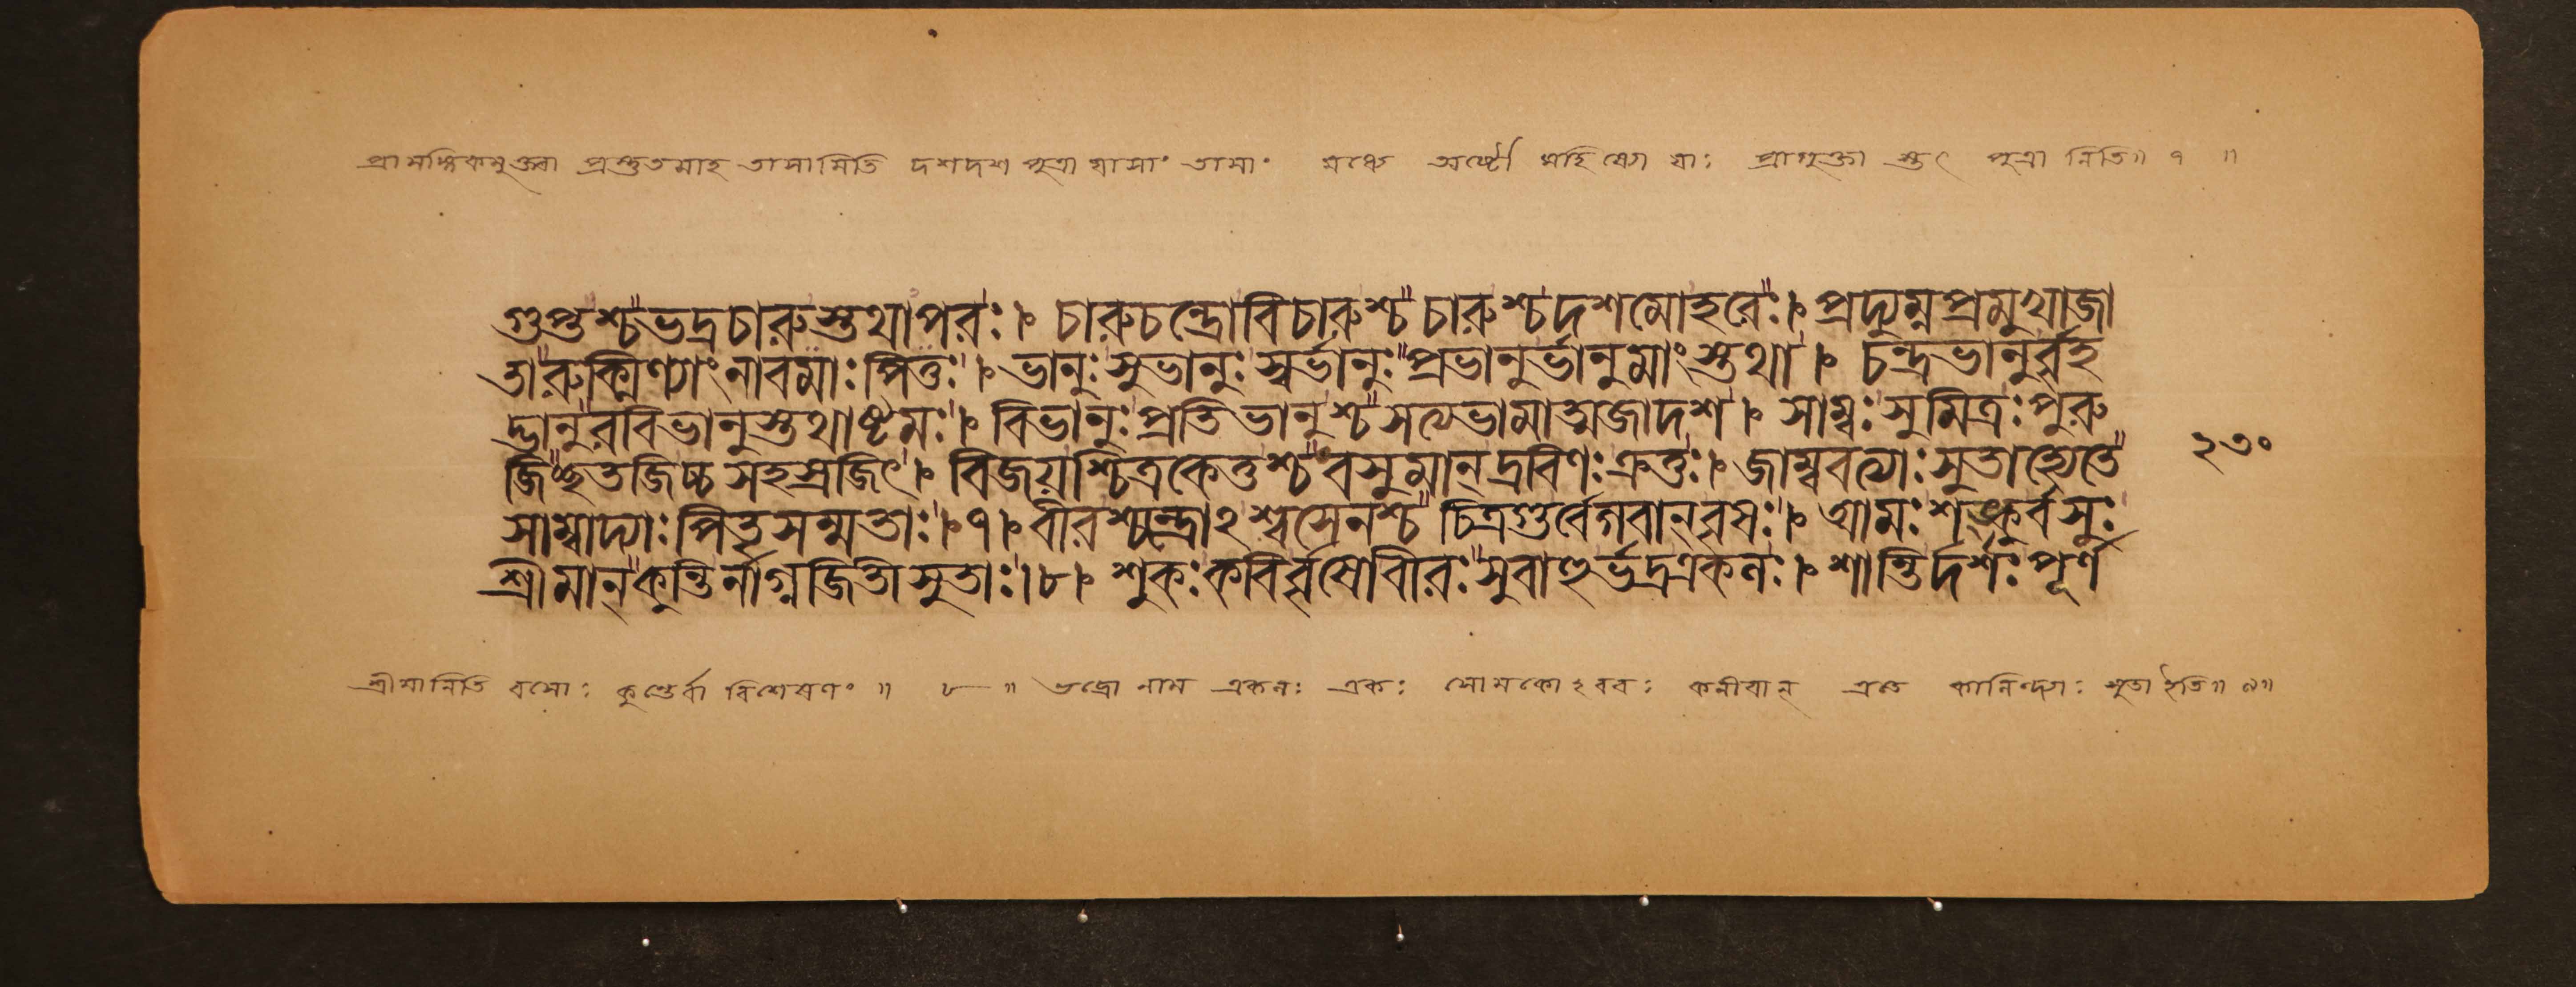 প্রাসঙ্গিকমুক্ত্বা প্রস্তুতমাহ তাসামিতি দশদশ পুত্রা যাসাং তাসাং মধ্যে অষ্টৌ মহিষ্যো যাঃ প্রাগুক্তা স্তৎ পুত্রা নিতি॥ ৭ ॥
গুপ্তশ্চভদ্রচারুস্তথাপরঃ। চারুচন্দ্রোবিচারুশ্চচারুশ্চদশমোহরেঃ। প্রদ্যুম্নপ্রমুখাজা
তারুক্মিণ্যাংনাবমাঃপিতুঃ। ভানুঃসুভানুঃস্বর্ভানুঃপ্রভানুর্ভানুমাংস্তথা। চন্দ্রভানুর্বৃহ
দ্ভানুরবিভানুস্তথাষ্টমঃ। বিভানুঃপ্রতিভানুশ্চসত্যভামাত্মজাদশ। সাম্বঃসুমিত্রঃপুরু
জিচ্ছতজিচ্চসহস্রজিৎ। বিজয়শ্চিত্রকেতুশ্চবসুমান্দ্রবিণঃক্রতুঃ। জাম্ববত্যাঃসুতাহ্যেতে
২৩০
সাম্বাদ্যাঃপিতৃসম্মতাঃ।৭।বীরশ্চন্দ্রোঽশ্বসেনশ্চচিত্রগুর্বেগবান্বৃষঃ। আমঃশঙ্কুর্বসুঃ
শ্রীমান্কুন্তির্নাগ্নজিতীসুতাঃ।৮। শুকঃকবির্বৃষোবীরঃসুবাহুর্ভদ্রএকনঃ। শান্তির্দর্শঃপূর্ণ
শ্রীমানিতি বসোঃ কুন্তের্বা বিশেষণং ॥ ৮ ॥ ভদ্রো নাম একনঃ একঃ সোমকোঽবরঃ কনীয়ান্ এতে কালিন্দ্যাঃ সুতা ইতি॥ ৯॥